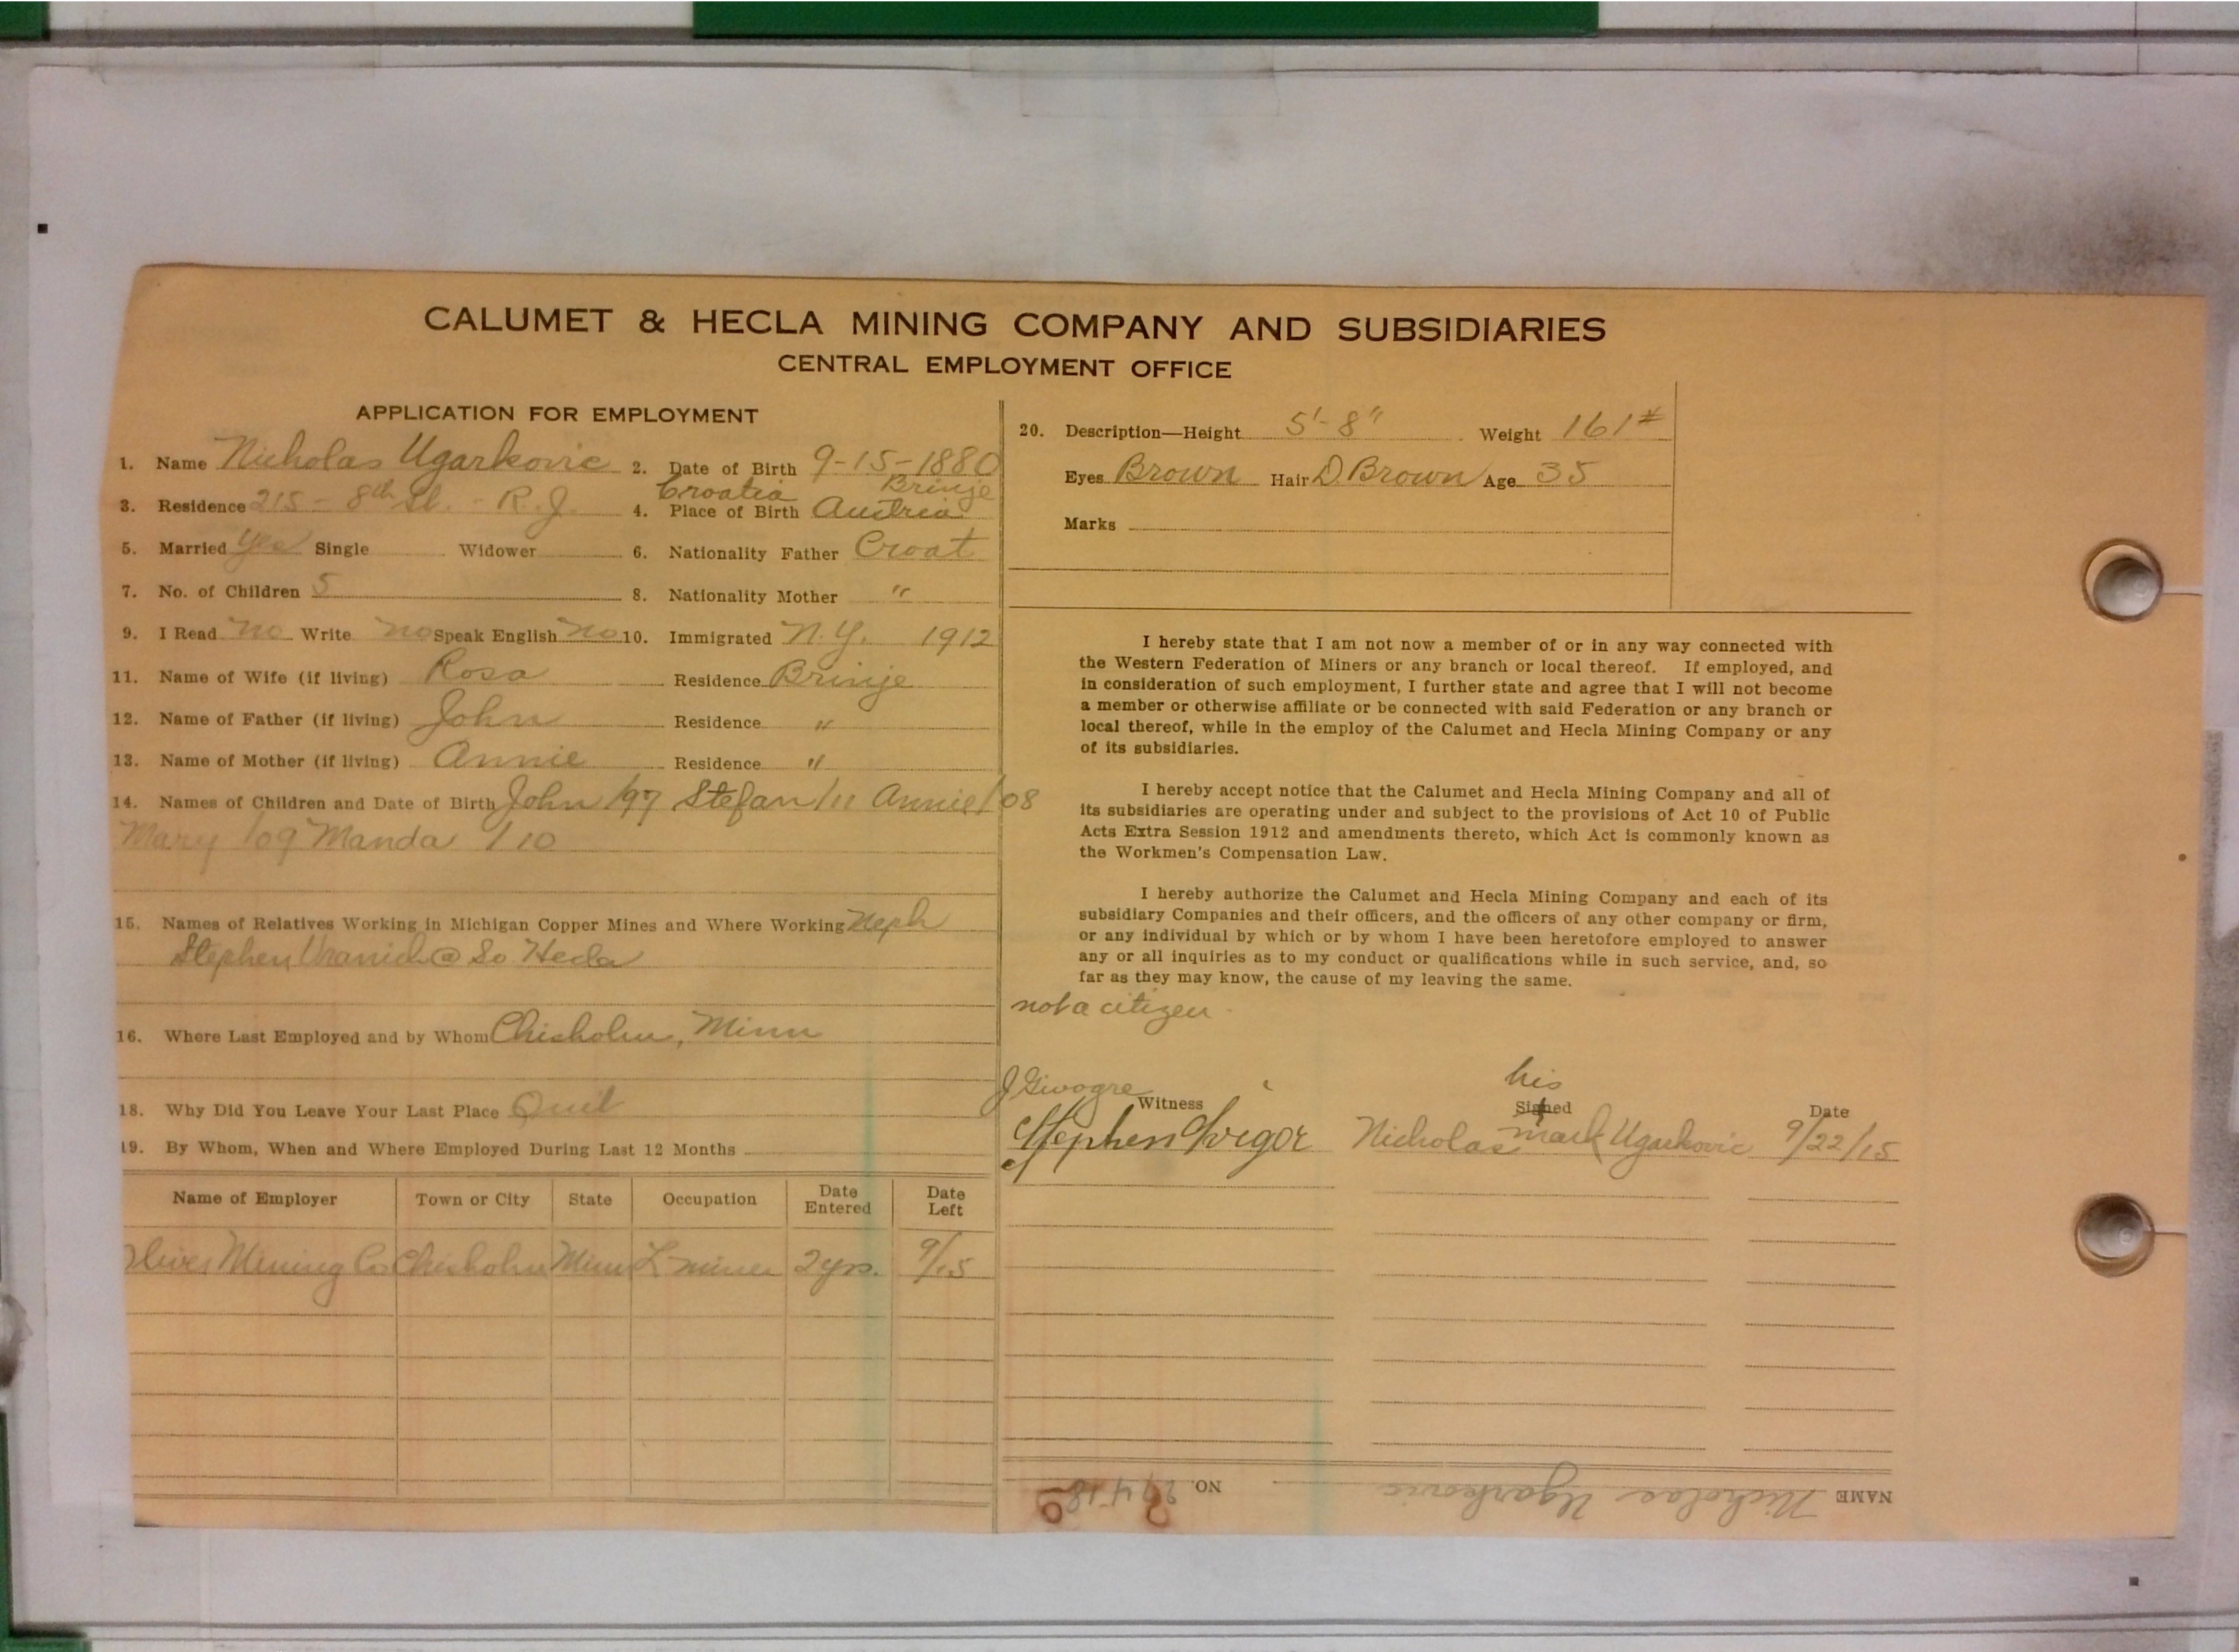 CALUMET & HECLA MINING COMPANY AND SUBSIDIARIES
CENTRAL EMPLOYMENT OFFICE
APPLICATION FOR EMPLOYMENT
1. Name Nicholas Ugarkovic 2. Date of Birth 9-15-1880
3. Residence 215 - 8th St. - R.J. 4. Place of Birth Croatia Brinje Austria
5. Married Yes Single Widower 6. Nationality Father Croat
7. No. of Children 5 8. Nationality Mother "
9. I Read no Write no Speak English no 10. Immigrated N.Y. 1912
11. Name of Wife (if living) Rosa Residence Brinje
12. Name of Father (if living) John Residence "
13. Name of Mother (if living) Annie Residence "
14. Names of Children and Date of Birth John /97 Stefan /11 Annie /08
Mary /09 Manda /10
15. Names of Relatives Working in Michigan Copper Mines and Where Working Neph
Stephen @ So Hecla
16. Where Last Employed and by Whom Chisholm, Minn
18. Why Did You Leave Your Last Place Quit
19. By Whom, When and Where Employed During Last 12 Months
Name of Employer Town or City State Occupation Date Entered Date Left
Oliver Mining Co Chisholm Minn L miner 2 yrs. 9/15
20. Description—Height 5'-8" Weight 161#
Eyes Brown Hair D. Brown Age 35
Marks
I hereby state that I am not now a member of or in any way connected with
the Western Federation of Miners or any branch or local thereof. If employed, and
in consideration of such employment, I further state and agree that I will not become
a member or otherwise affiliate or be connected with said Federation or any branch or
local thereof, while in the employ of the Calumet and Hecla Mining Company or any
of its subsidiaries.
I hereby accept notice that the Calumet and Hecla Mining Company and all of
its subsidiaries are operating under and subject to the provisions of Act 10 of Public
Acts Extra Session 1912 and amendments thereto, which Act is commonly known as
the Workmen's Compensation Law.
I hereby authorize the Calumet and Hecla Mining Company and each of its
subsidiary Companies and their officers, and the officers of any other company or firm,
or any individual by which or by whom I have been heretofore employed to answer
any or all inquiries as to my conduct or qualifications while in such service, and, so
far as they may know, the cause of my leaving the same.
not a citizen
his
Witness Signed Date
Stephen Nicholas mark Ugarkovic 9/22/15
NAME Nicholas Ugarkovic NO.